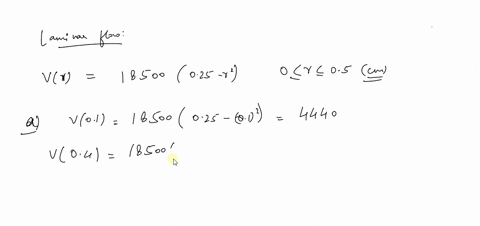 Laminar flow:
V(r) = 18500 (0.25-r²) 0 ≤ r ≤ 0.5 (cm)
a) V(0.1) = 18500 (0.25-(0.1)²) = 4440
V(0.4) = 18500(